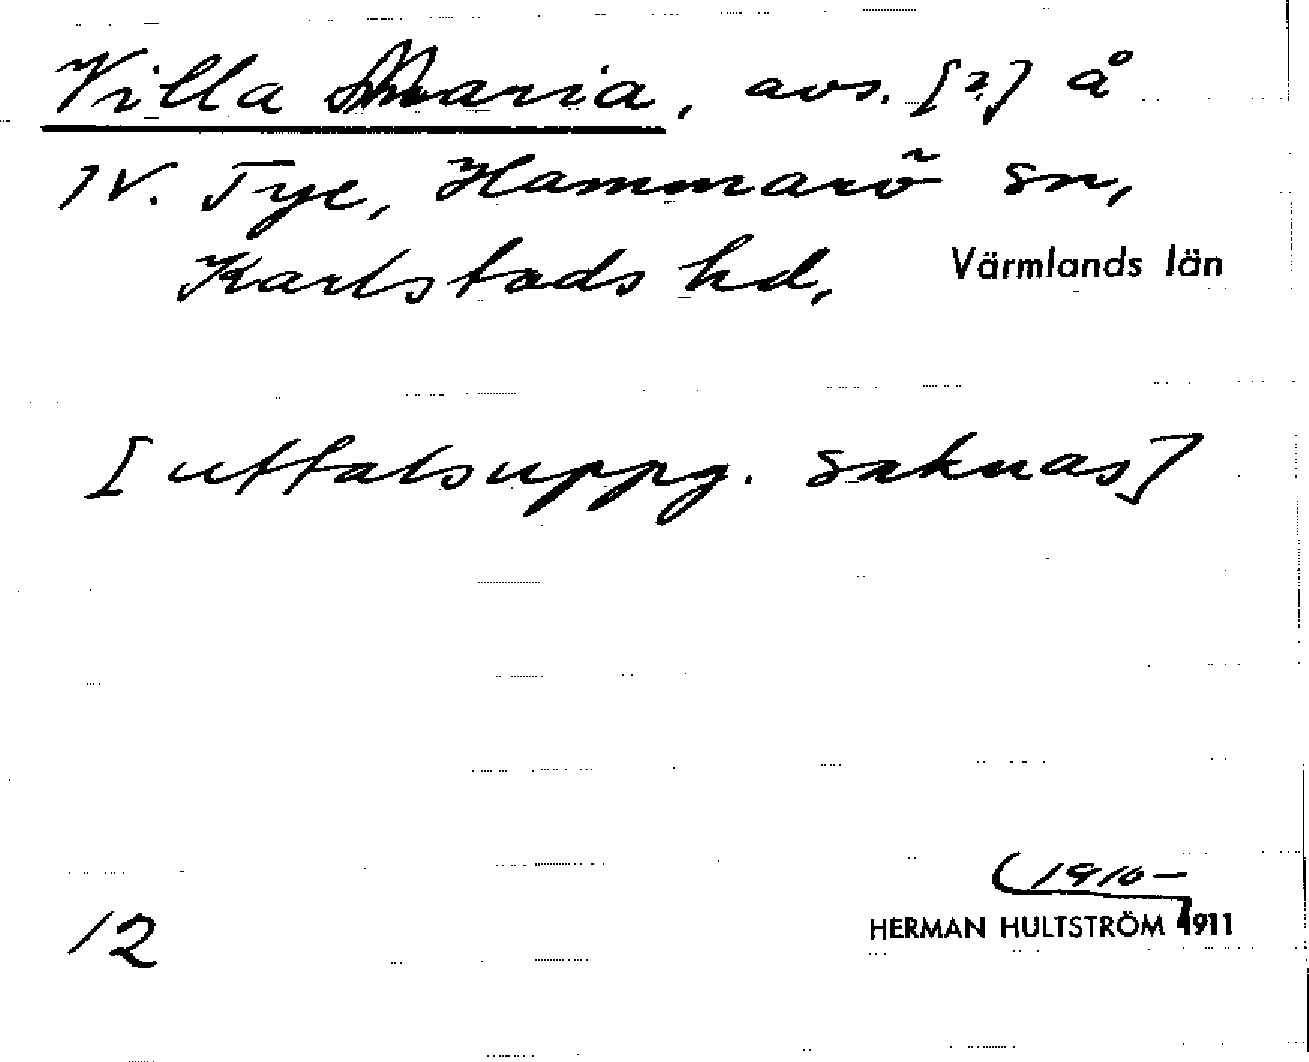 Villa Maria, avs. [?] å
IV. Tye, Hammarö sn,
Karlstads hd, Värmlands län
[uttalsuppg. saknas]
1910–
HERMAN HULTSTRÖM 1911
12